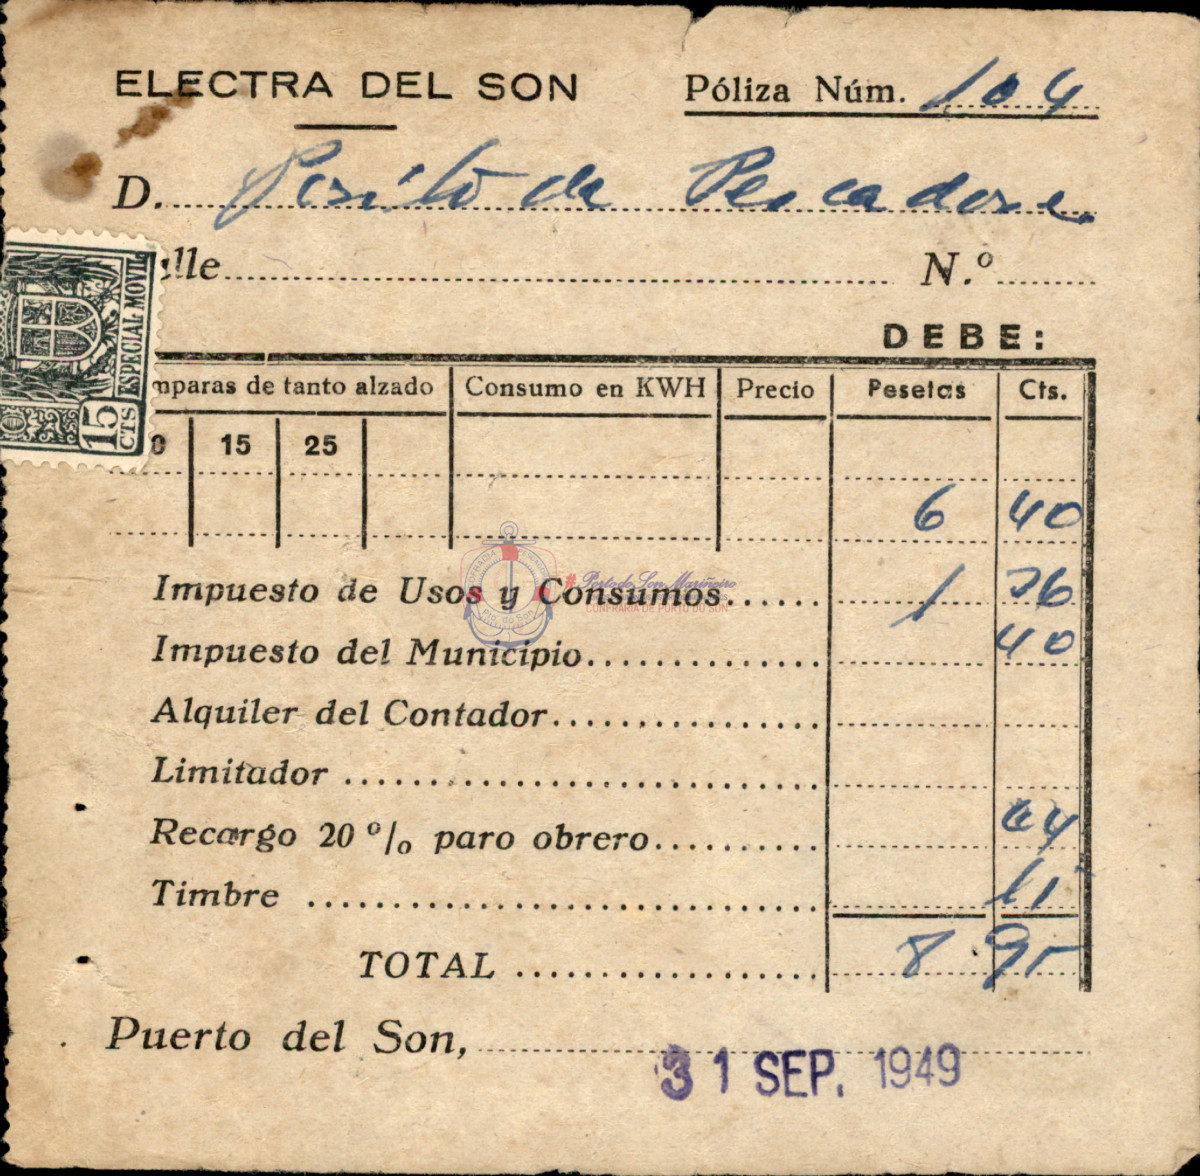 ELECTRA DEL SON Póliza Núm. 104
D. Posíto de Pescadores
alle N.º
ESPECIAL MOVIL
15 CTS
DEBE:
mparas de tanto alzado Consumo en KWH Precio Pesetas Cts.
0 15 25
6 40
Impuesto de Usos y Consumos 1 36
#Portodo Son Mariñeiro
CONFRARÍA DE PORTO DO SON
Pto. do Son
Impuesto del Municipio 40
Alquiler del Contador
Limitador
Recargo 20 % paro obrero 64
Timbre 15
TOTAL 8 95
Puerto del Son,
31 SEP. 1949